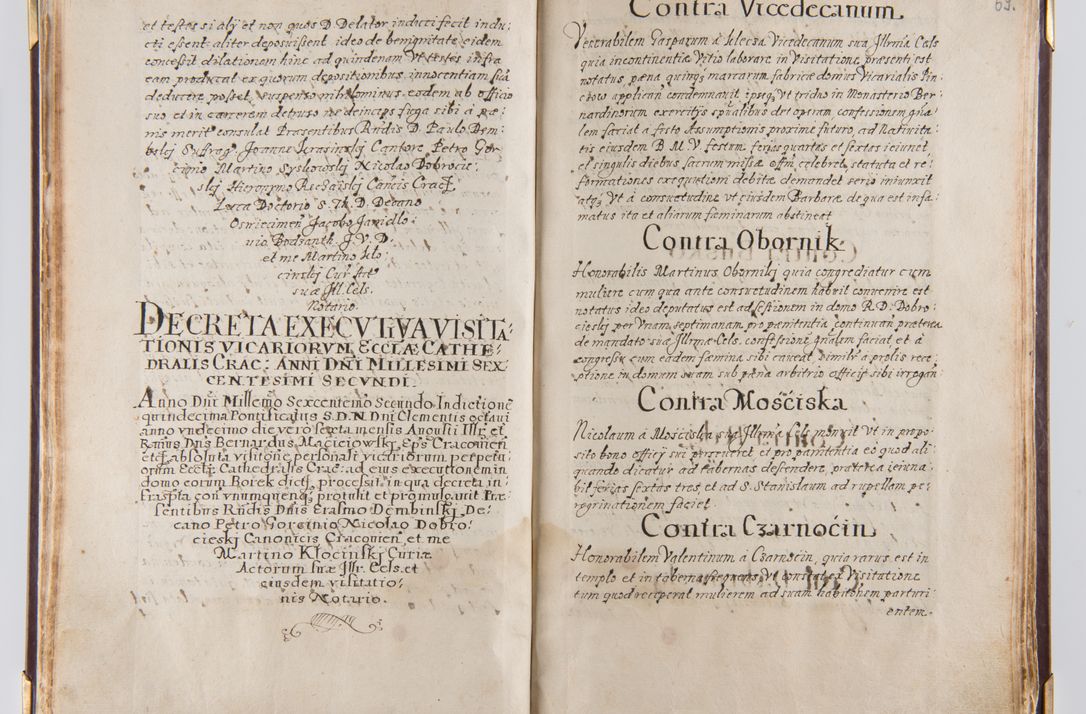 et testes si alij et non quos D. Delator inducti fecit indu:
cti essent aliter deposuissent ideo de benignitate eidem
concessit dilationem hinc ad quindenam Vt testes infra
eam producat ex quorum depositionibus innocentiam suã
deducere posset, suspenso nihilominus eodem ab officio
suo et in carcerem detruso ne deinceps fuga sibi à pæ:
nis merit consulat Præsentibus Rndis D. Paulo Dem:
bskij Sufrag. Joanne Kerasinskj Cantore Petro Gor:
cinio Martino Syskowskj Nicolao Dobrocie:
skj Hieronymo Rieczaiskj Cancis Cracſ.
Luca Doctorio S. Th. D. Decano
Oswiecimen Jacobo Janidlo:
uio Bodzanth J.V.D.
et me Martino Klo:
cinskj Cur Act.
suæ Ill. Cels.
Notario.
DECRETA EXECVTIVA VISITA:
TIONIS VICARIORVM, ECCLÆ CATHE:
DRALIS CRAC: ANNI DNĪ MILLESIMI SEX
CENTESIMI SECVNDI.
Anno Dnĩ Millemo Sexcentemo Secundo Indictionē
quindecima Pontificatus S.D.N. Dnĩ Clementis octaui
anno vndecimo die vero sexta mensis Augusti Illr. et
Rãmus Dñs Bernardus Macieiowski Eps Cracouien
etcſ. absoluta visitione personali vicariorum perpetu
orum Ecclæ Cathedralis Crac: ad eius executionem in
domo eorum Borek dict. processit, in qua decreta in:
frascpta con vnumquenq protulit et promulgauit Præ
sentibus Rndis Dnis Erasmo Dembinskj De:
cano Petro Gorcinio Nicolao Dobro:
cieskj Canonicis Cracouien et me
Martino Kłocinskj Curiæ
Actorum suæ Illr. Cels. et
eiusdem visitatio:
nis Notario.
63.
Contra Vicedecanum.
Venerabilem Gasparum à Klecza Vicedecanum sua Jllrmã Cels
quia incontinentiæ Vitio laborare in Visitatione præsenti est
notatus pæna quinq marcarum fabricæ domus Vicarialis Pin
czow applican condemnavit ipseq Vt triduo in Monasterio Ber:
nardinorum exercitijs spũalibus det operam, confessionem gña:
lem faciat a festo Assumptionis proxime futuro, ad Natiuita:
tis eiusdem B.M.V. festum ferias quartas et sextas ieiunet
et singulis diebus sacrum missæ offm celebret, statuta et re:
formationes exequutioni debitæ demandet serio iniunxit
atq Vt à consuetudine vt eiusdem Barbaræ de qua est infa:
matus ita et aliarum fæminarum abstineat
Contra Obornik.
Honorabilis Martinus Obornikj quia congrediatur cum
muliere cum qua ante consuetudinem habuit conuenire est
notatus ideo deputatus est ad sessionem in domo R.D. Dobro:
cieskj per Vnam septimanam pro pænitentia continuan præterea
de mandato suæ Jllrmæ Cels. confessione gnalem faciat et à
congressu cum eadem fæmina sibi caueat similr à prolis rece:
ptione in domum suam sub pæna arbitrio officij sibi irrogan:
Contra Mosćiska
Nicolaum à Mosciska sua Jllrmã Cels monuit Vt in propo:
sito bono officij sui perseueret et pro pænitentia eo quod ali:
quando dicatur ad tabernas descendere præterea ieiuna:
bit ferias sextas tres, et ad S. Stanislaum ad rupellam pe:
regrinationem faciet.
Contra Czarnoćin.
Honorabilem Valentinum à Czarnocin, quia rarus est in
templo et in taberna frequens Vt constat ex Visitatione
tum quod receperat mulierem ad suam habitonem parturi
entem.